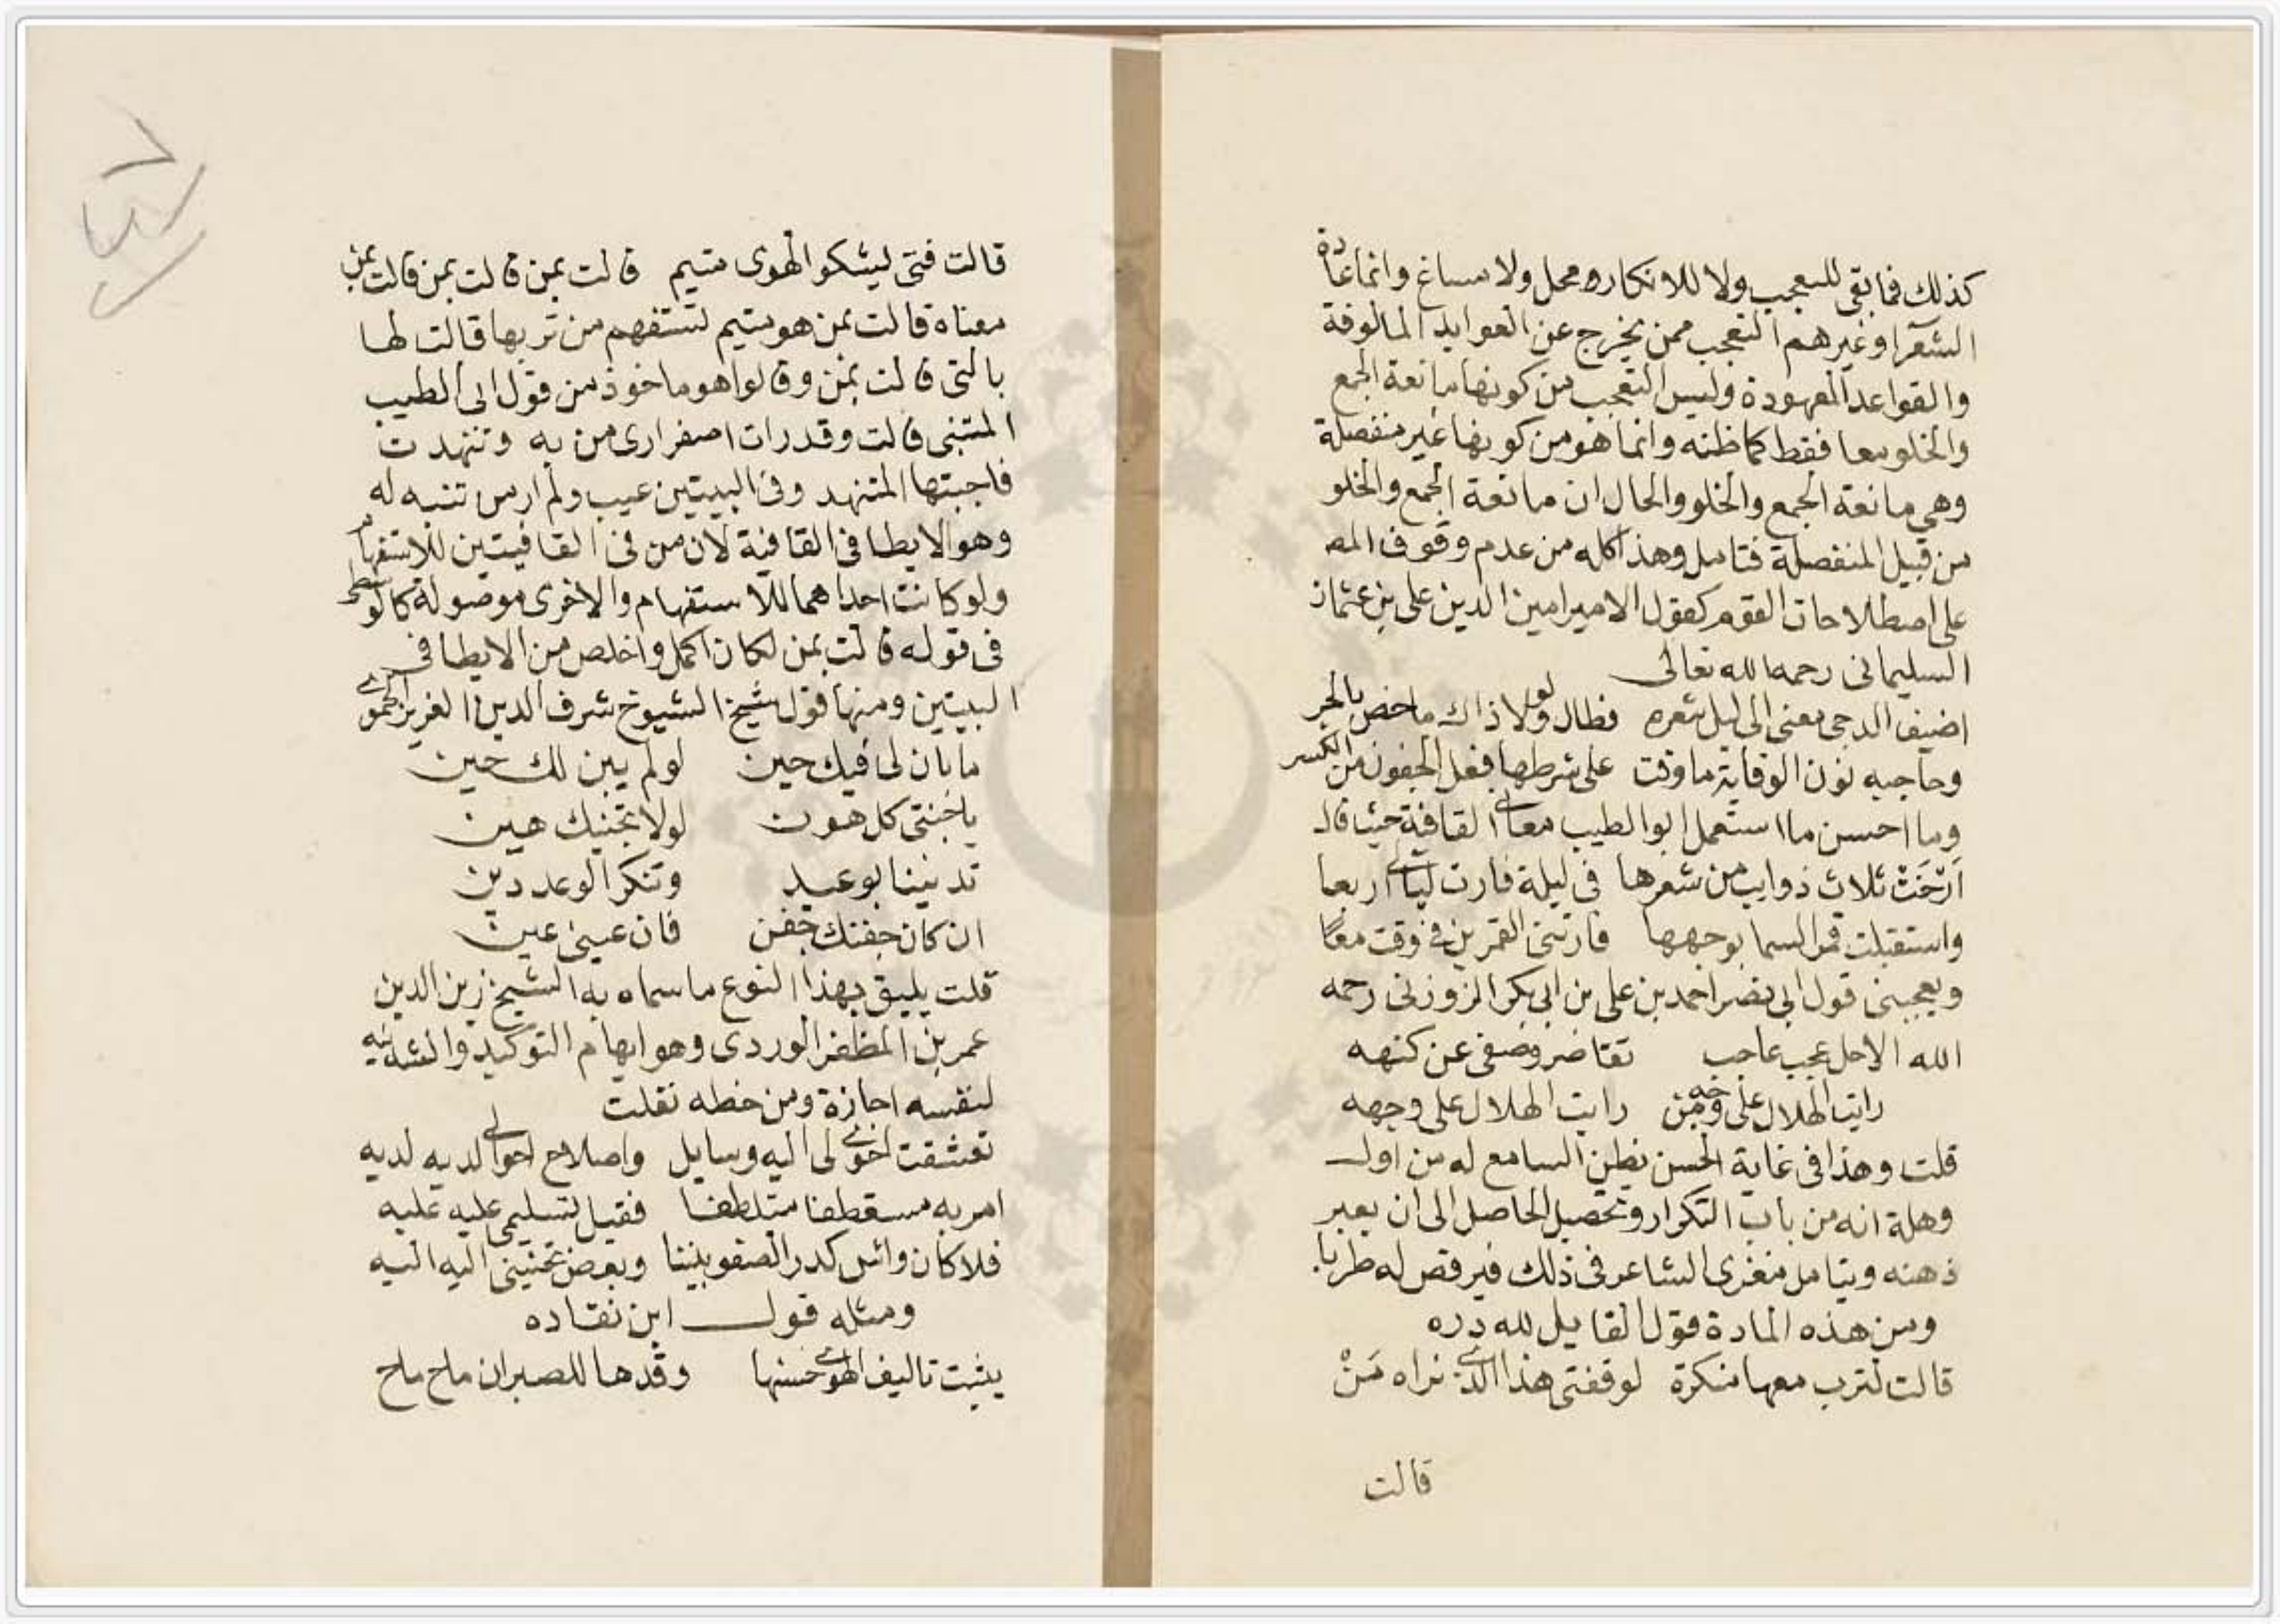 كذلك فما بقى للتعجب ولا للانكاره محل ولا مساغ وانما عادة
الشعرا وغيرهم التعجب ممن يخرج عن العوايد المالوفة
والقواعد المعهودة وليس التعجب من كونها مانعة الجمع
والخلو معا فقط كما ظنه وانما هو من كونها غير منفصلة
وهي مانعة الجمع والخلو والحال ان مانعة الجمع والخلو
من قبيل المنفصلة فتامل وهذا كله من عدم وقوف المص
على اصطلاحات القوم كقول الامير امين الدين على بن عثمان
السليمانى رحمه الله تعالى
اضيف الدجى معنى الى ليل شعره فطال ولولا ذاك ما خص بالجر
وحاجبه نون الوقاية ما وقت على شرطها فعل الجفون من الكسر
وما احسن ما استعمل ابو الطيب معانى القافية حيث قال
اَرْخَتْ ثلاث ذوايب من شعرها فى ليلة فارت ليالى اربعا
واستقبلت قمر السما بوجهها فارتنى القمرين فى وقت معًا
ويعجبنى قول ابى نصر احمد بن على بن ابى بكر الزوزنى رحمه
الله الاحل عجب عاجب تقاضر وصفى عن كنهه
رايت الهلال على وجه من رايت الهلال على وجهه
قلت وهذا فى غاية الحسن يظن السامع له من اول
وهلة انه من باب التكرار وتحصيل الحاصل الى ان يعبر
ذهنه ويتامل مغزى الشاعر فى ذلك فيرقص له طربا.
ومن هذه المادة قول القايل لله دره
قالت لترب معها منكرة لوقفتى هذا الذى نراه مَنْ
قالت
قالت فتى يشكو الهوى متيم قالت بمن قالت بمن قالت بمن
معناه قالت بمن هو متيم تستفهم من تربها قالت لها
بالتى قالت بمن وقالوا هو ماخوذ من قول ابى الطيب
المتنبى قالت وقد رات اصفرارى من به وتنهدت
فاجبتها المتنهد وفى البيتين عيب ولم ار من تنبه له
وهو الايطا فى القافية لان من فى القافيتين للاستفهام
ولو كانت احداهما للاستفهام والاخرى موصولة كالوسطى
فى قوله قالت بمن لكان اكمل واخلص من الايطا فى
البيتين ومنها قول شيخ الشيوخ شرف الدين العزيز الحموى
ما بان لى فيك حين لو لم يبن لك حين
يا جنتى كل هون لولا تجنيك هين
تديننا بوعيد وتنكر الوعد دين
ان كان جفنك جفن فان عينى عين
قلت يليق بهذا النوع ما سماه به الشيخ زين الدين
عمر بن المظفر الوردى وهو ايهام التوكيد وانشدنيه
لنفسه اجازة ومن خطه نقلت
تعشقت احوى لى اليه وسايل واصلاح احوالى لديه لديه
امر به مستعطفا متلطفا فقيل لتسليمى عليه عليه
فلا كان واش كدر الصفو بيننا وبعض تحنينى اليه اليه
ومثله قول ابن نقاده
يثبت تاليف الهوى حسنها وقدها للصبر ان ماح ماح